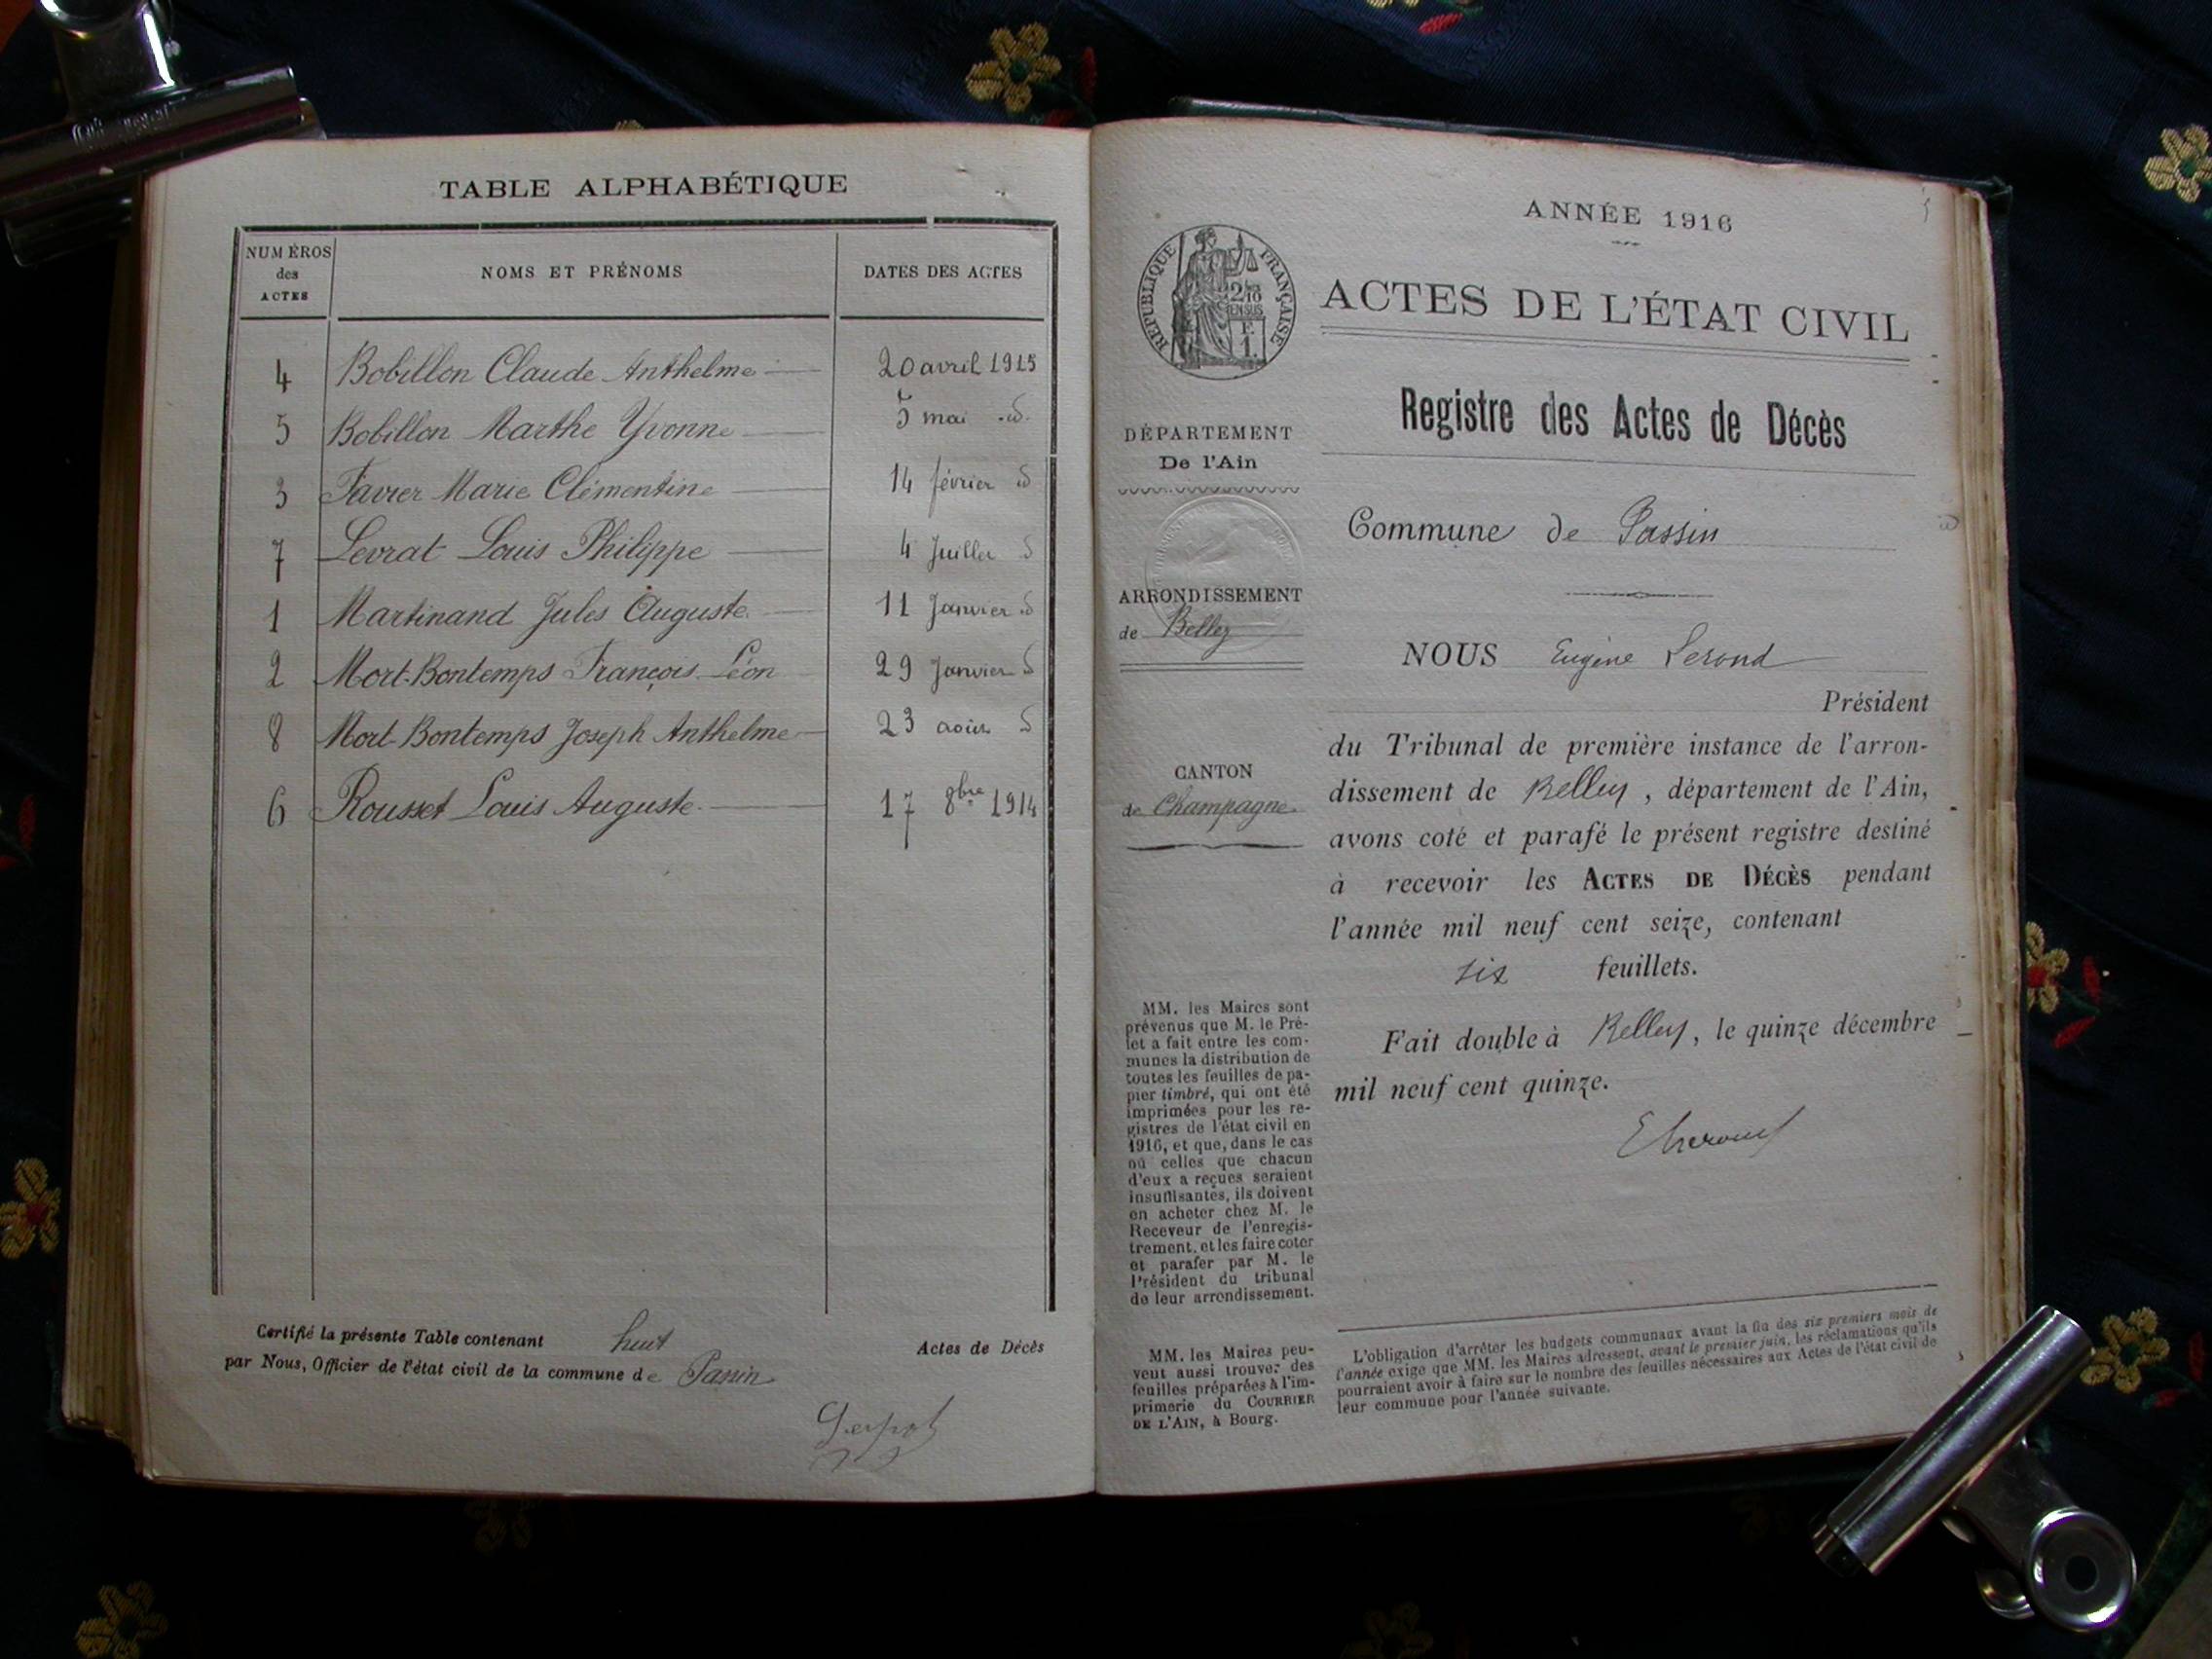 TABLE ALPHABÉTIQUE
NUMÉROS des ACTES
NOMS ET PRÉNOMS
DATES DES ACTES
4 Bobillon Claude Anthelme 20 avril 1915
5 Bobillon Marthe Yvonne 5 mai d
3 Favier Marie Clémentine 14 février d
7 Levrat Louis Philippe 4 Juillet d
1 Martinand Jules Auguste 11 Janvier d
2 Mort-Bontemps François Léon 29 Janvier d
8 Mort-Bontemps Joseph Anthelme 23 août d
6 Rousset Louis Auguste 17 8bre 1914
Certifié la présente Table contenant huit Actes de Décès
par Nous, Officier de l'état civil de la commune de Passin
ANNÉE 1916
RÉPUBLIQUE FRANÇAISE
2/10 EN SUS
F.
1.
ACTES DE L'ÉTAT CIVIL
Registre des Actes de Décès
DÉPARTEMENT
De l'Ain
Commune de Passin
ARRONDISSEMENT
de Belley
CANTON
de Champagne
NOUS Eugène Lerond
Président
du Tribunal de première instance de l'arron-
dissement de Belley, département de l'Ain,
avons coté et parafé le présent registre destiné
à recevoir les ACTES DE DÉCÈS pendant
l'année mil neuf cent seize, contenant
six feuillets.
Fait double à Belley, le quinze décembre
mil neuf cent quinze.
MM. les Maires sont
prévenus que M. le Pré-
fet a fait entre les com-
munes la distribution de
toutes les feuilles de pa-
pier timbré, qui ont été
imprimées pour les re-
gistres de l'état civil en
1916, et que, dans le cas
où celles que chacun
d'eux a reçues seraient
insuffisantes, ils doivent
en acheter chez M. le
Receveur de l'enregis-
trement, et les faire coter
et parafer par M. le
Président du tribunal
de leur arrondissement.
MM. les Maires peu-
vent aussi trouver des
feuilles préparées à l'im-
primerie du COURRIER
DE L'AIN, à Bourg.
L'obligation d'arrêter les budgets communaux avant la fin des six premiers mois de
l'année exige que MM. les Maires adressent, avant le premier juin, les réclamations qu'ils
pourraient avoir à faire sur le nombre des feuilles nécessaires aux Actes de l'état civil de
leur commune pour l'année suivante.